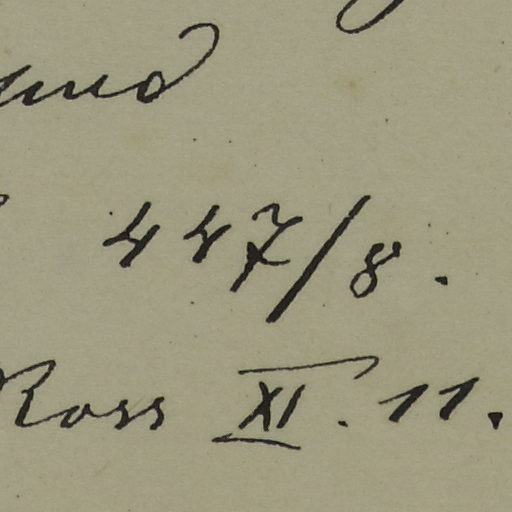 und
447/8.
Ross XI. 11.